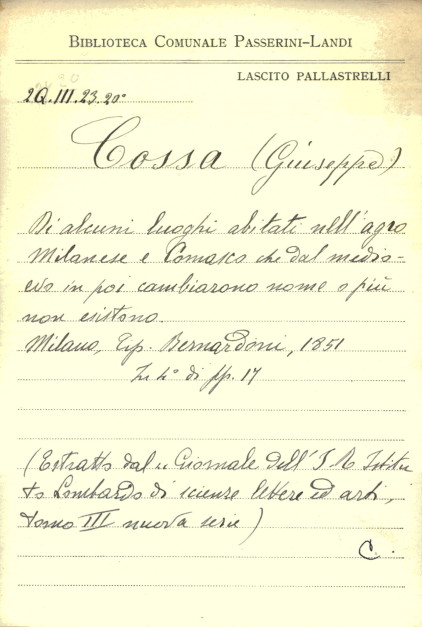 BIBLIOTECA COMUNALE PASSERINI-LANDI
LASCITO PALLASTRELLI
2Q.III.23.20°
Cossa (Giuseppe)
Di alcuni luoghi abitati nell'agro
Milanese e Comasco che dal medio-
evo in poi cambiarono nome o più
non esistono.
Milano, Tip. Bernardoni, 1851
In 4° di pp. 17
(Estratto dal "Giornale dell'I. R. Istitu
to Lombardo di scienze lettere ed arti,
tomo III nuova serie)
C.